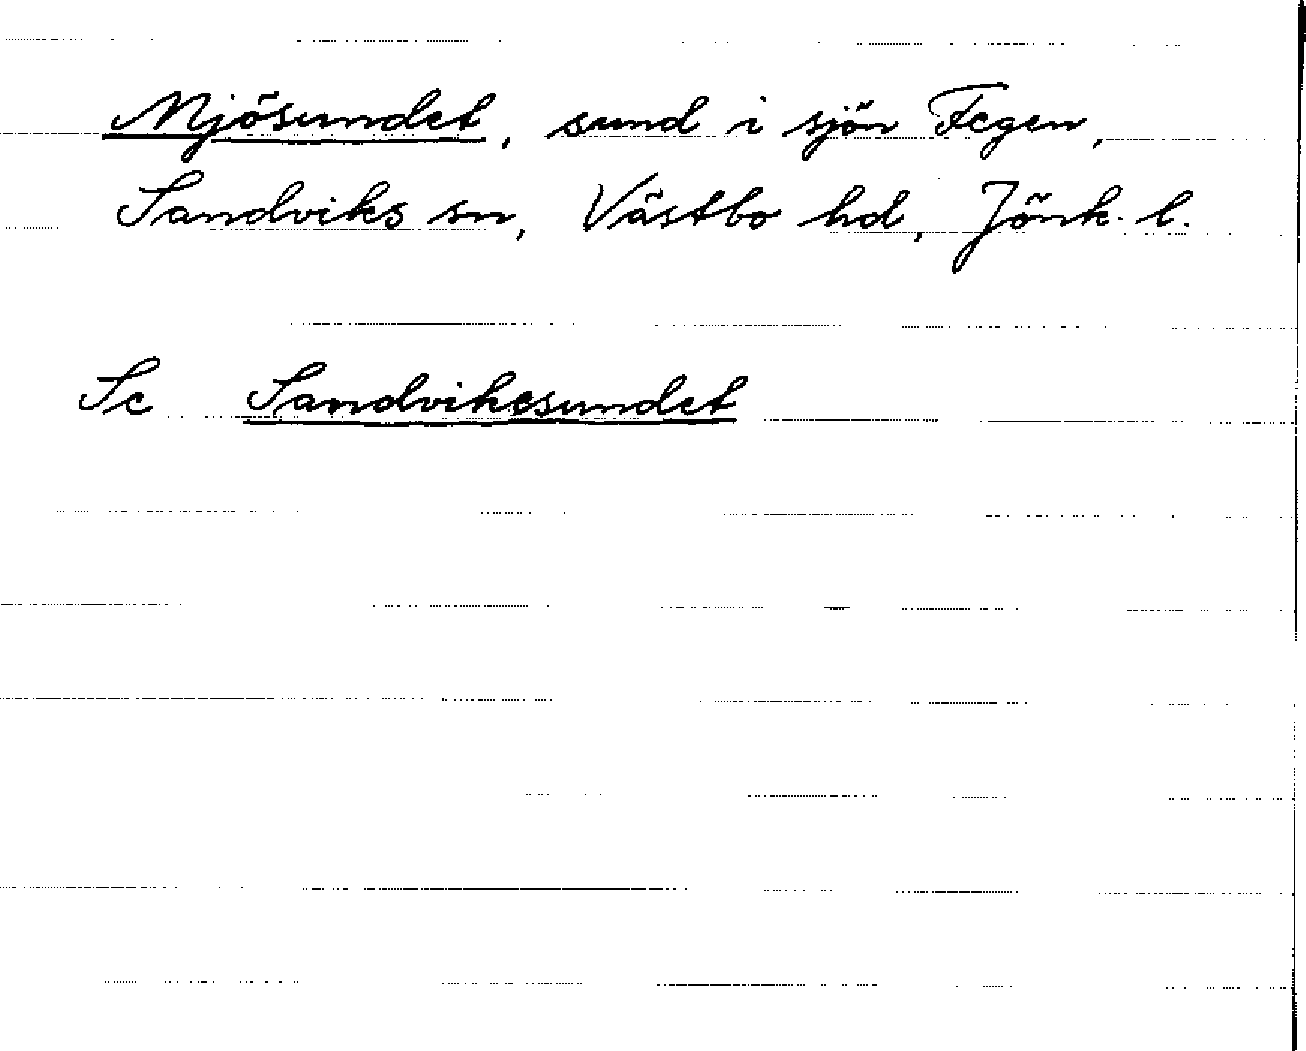 Mjösundet, sund i sjön Fegen,
Sandviks sn, Västbo hd, Jönk. l.
Se Sandviksundet